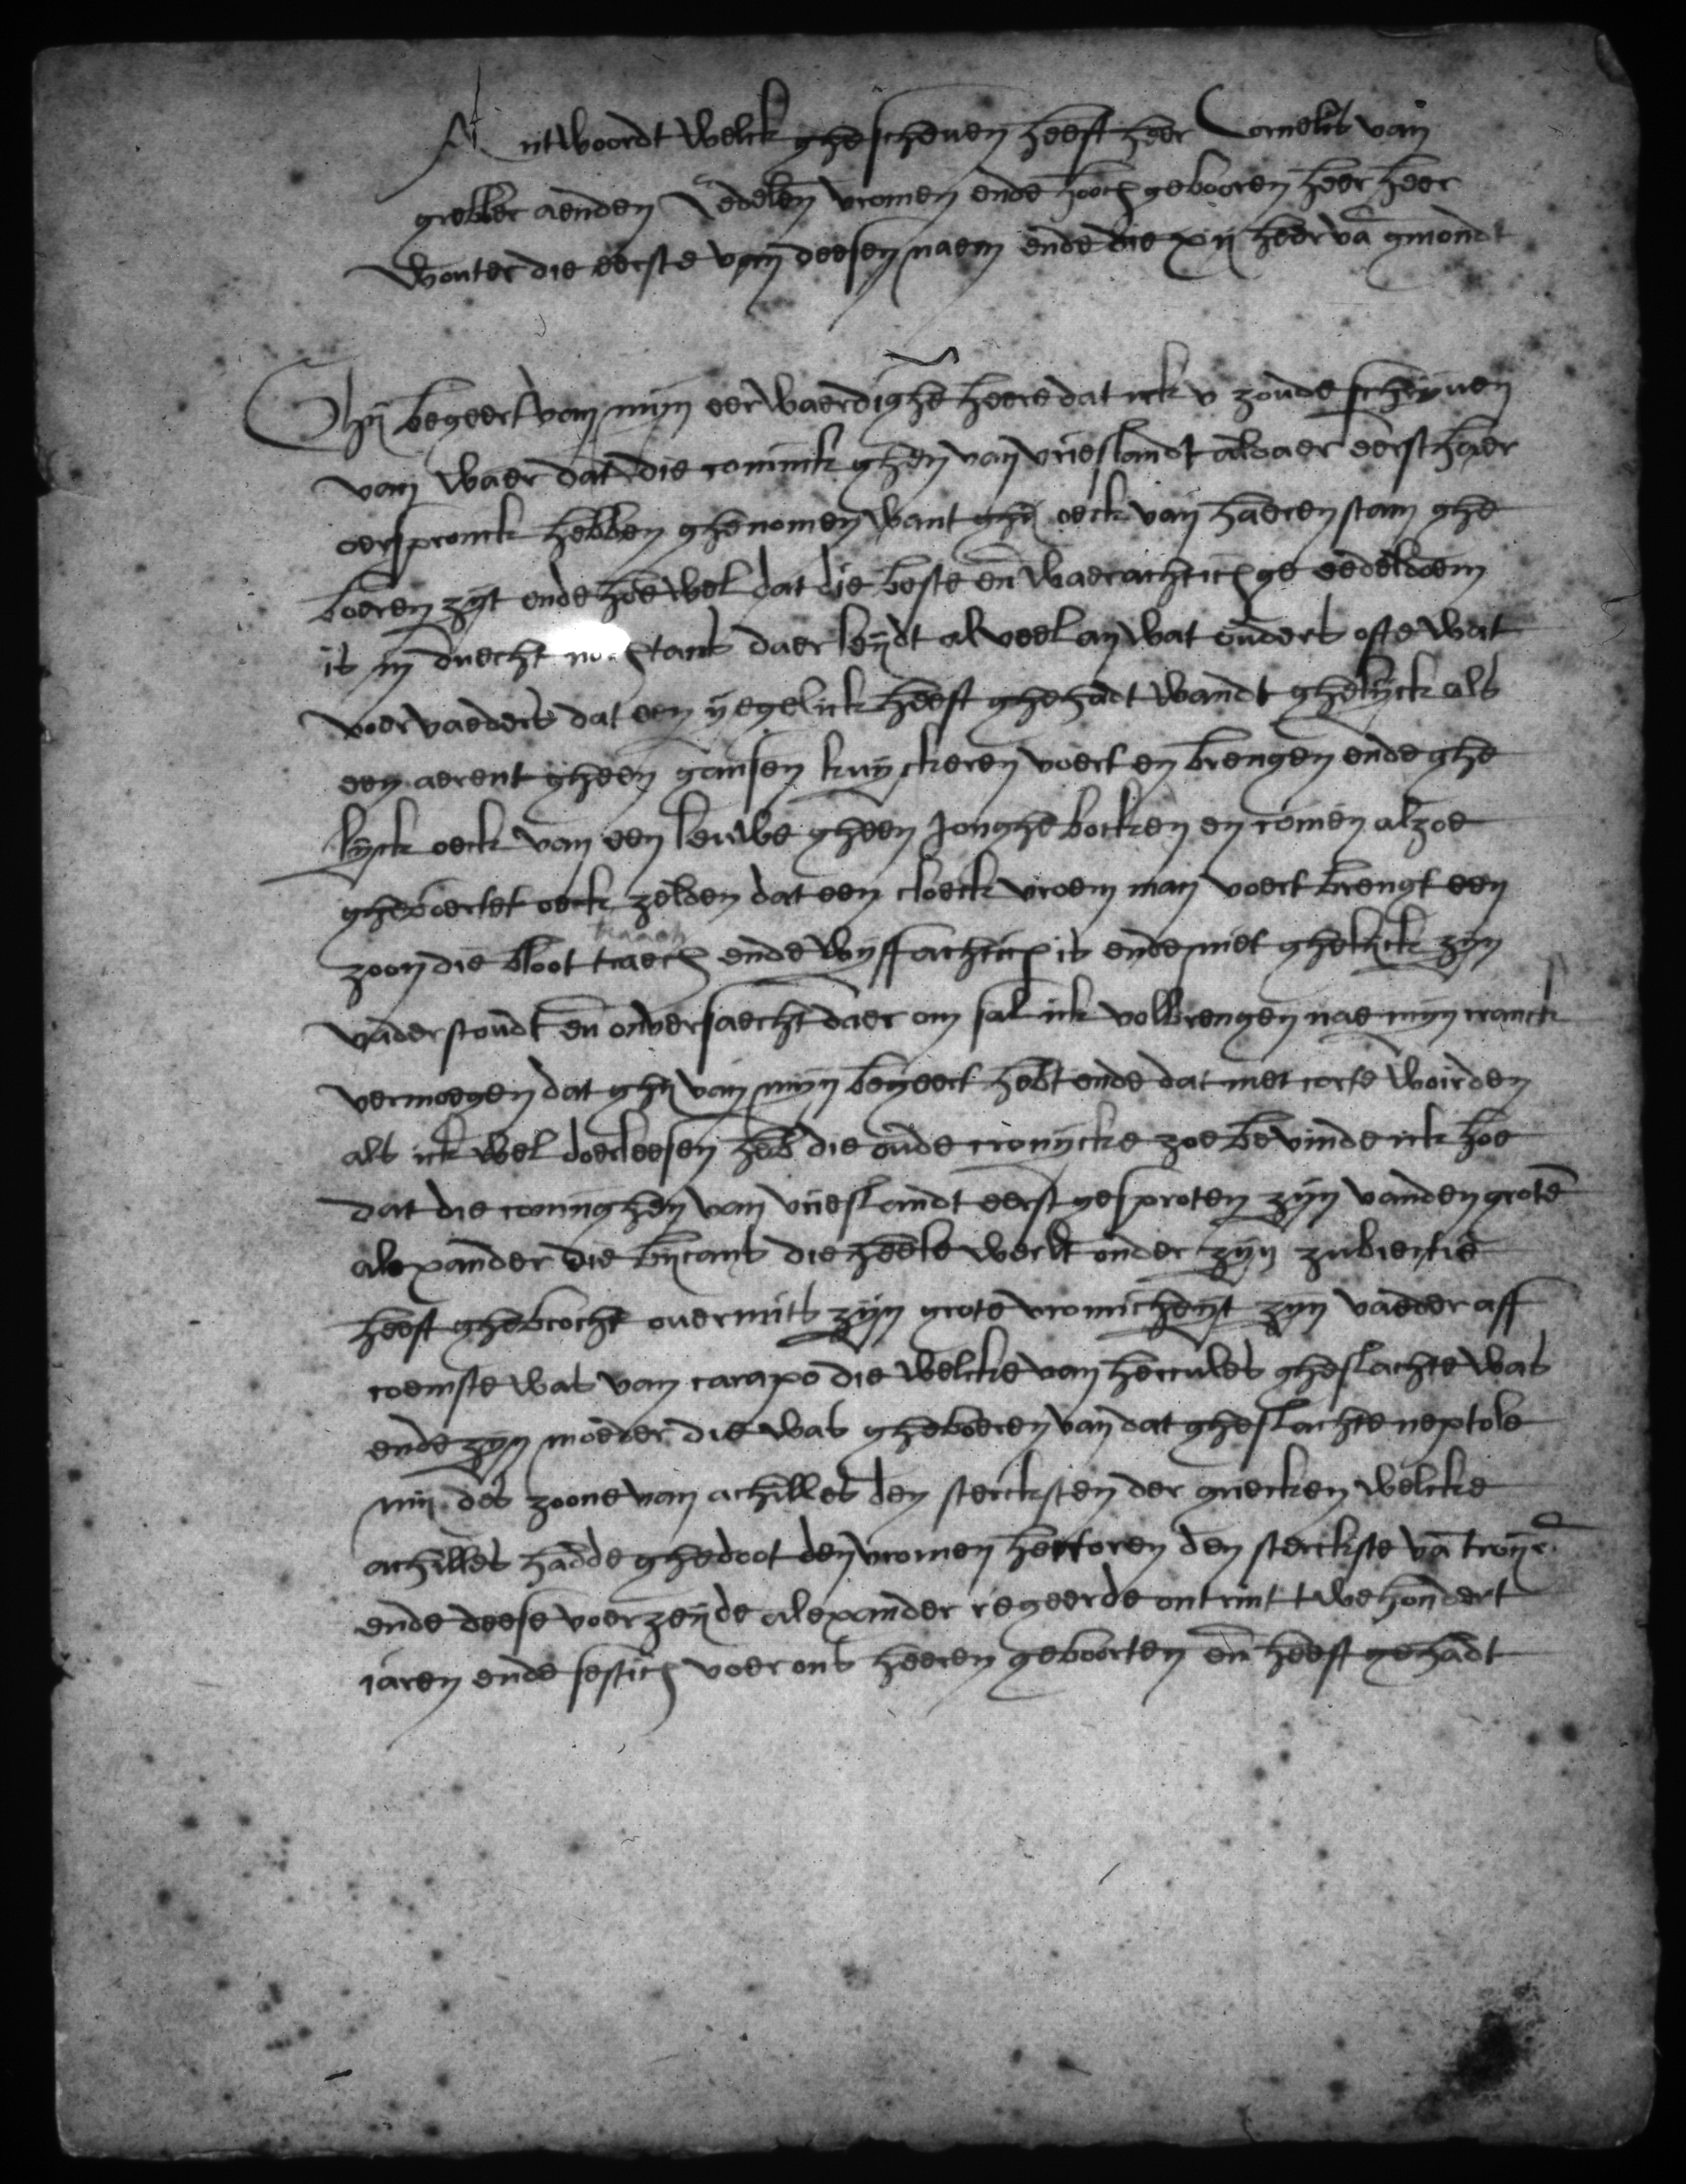 Antwoordt welck ghescheuen heeft heer Cornelis van
grebber aenden Eedelen vromen ende hooch gebooren heer heer
wouter die eerste van deesen naem ende die xij heer vā gmondt
Ghij begeert van mijn eerwaerdighe heere dat ick v zoude schrijuen
van waer dat die coninck ghen van vrieslandt alvaer eerst haer
oerspronck hebben ghenomen want ghij oeck van haeren stam ghe
boeren zijt ende hoe wel dat die beste eñ waerachtich ge eedeldoem
is in duecht nochtans daer leijdt al veel an wat ouders ofte wat
voervaeders dat een ijegelick heeft ghehadt wandt ghelijck als
een aerent gheen gansen kuijckeren voert en brengen ende ghe
lijck oeck van een leuwe gheen Jonghe bocken en comen alzoe
gheboertet oeck zelden dat een cloeck vroem man voert brengt een
zoon die bloot traech ende wijffachtich is ende niet ghelick zijn
vader stoudt eñ onversaecht daer om sal ick volbrengen nae mijn cranck
vermoegen dat ghij van mijn begeert hebt ende dat met corte woirden
als ick wel doerleesen heb die oude cronijcke zoe bevinde ick hoe
dat die coninghen van vrieslandt eerst gesproten zijn vanden grotē
alexander die bijcans die heele werlt onder zijn subiectie
heeft ghebrocht ouermits zijn grote vromicheijt zijn vaeder aff
coemste was van carapo die welcke van hercules gheslachte was
ende zijn moeder die was gheboeren van dat gheslachte neptole
mij des zoone van achilles den stercksten der griecken welcke
achilles hadde ghedoot den vromen hectoren den sterckste vā troije
ende deese voerzeijde alexander regeerde ontrint twehondert
iaren ende sestich voer ons heeren geboorten eñ heeft gehadt